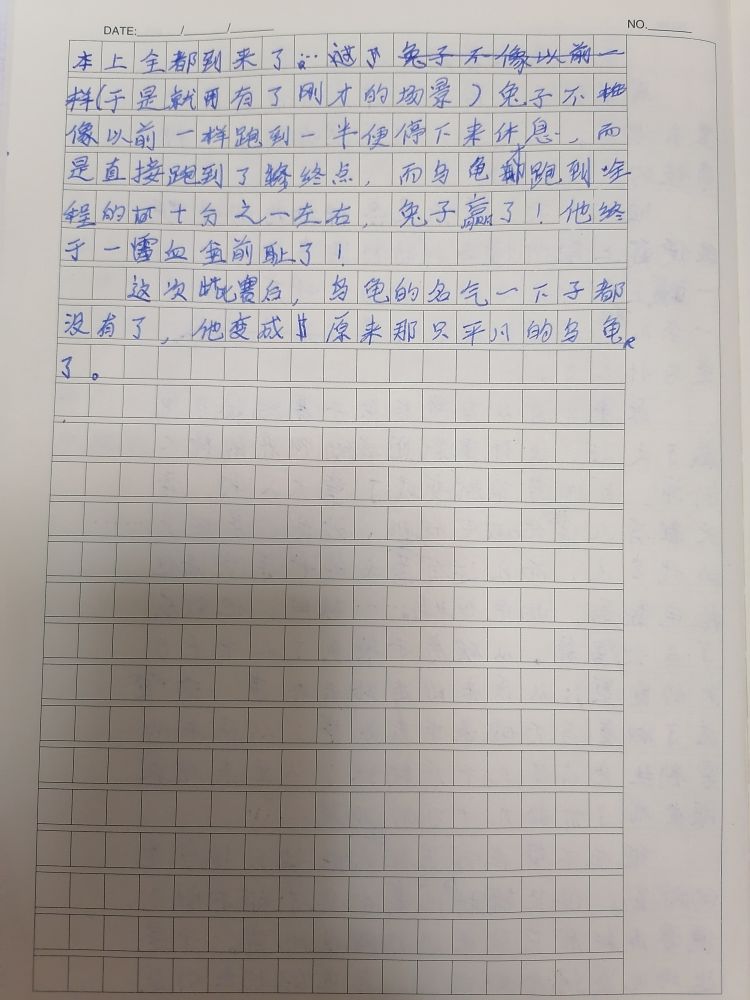 DATE:____/____/____ NO.____
本上全都到来了…过了兔子不像以前一
样(于是就有了刚才的场景)兔子不
像以前一样跑到一半便停下来休息,而
是直接跑到了终点,而乌龟才跑到全
程的十分之一左右,兔子赢了!他终
于一雪血前耻了!
这次比赛后,乌龟的名气一下子都
没有了,他变成原来那只平凡的乌龟
了。